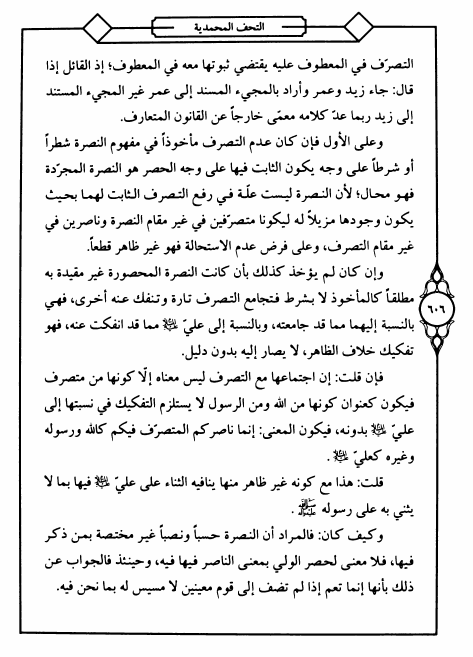 التحف المحمدية
التصرّف في المعطوف عليه يقتضي ثبوتها معه في المعطوف؛ إذ القائل إذا
قال: جاء زيد وعمر وأراد بالمجيء المسند إلى عمر غير المجيء المستند
إلى زيد ربما عدّ كلامه معمّى خارجاً عن القانون المتعارف.
وعلى الأول فإن كان عدم التصرف مأخوذاً في مفهوم النصرة شطراً
أو شرطاً على وجه يكون الثابت فيها على وجه الحصر هو النصرة المجرّدة
فهو محال؛ لأن النصرة ليست علّة في رفع التصرف الثابت لهما بحيث
يكون وجودها مزيلاً له ليكونا متصرّفين في غير مقام النصرة وناصرين في
غير مقام التصرف، وعلى فرض عدم الاستحالة فهو غير ظاهر قطعاً.
وإن كان لم يؤخذ كذلك بأن كانت النصرة المحصورة غير مقيدة به
مطلقاً كالمأخوذ لا بشرط فتجامع التصرف تارة وتنفك عنه أخرى، فهي
بالنسبة إليهما مما قد جامعته، وبالنسبة إلى عليّ مما قد انفكت عنه، فهو
تفكيك خلاف الظاهر، لا يصار إليه بدون دليل.
٦٠٦
فإن قلت: إن اجتماعها مع التصرف ليس معناه إلّا كونها من متصرف
فيكون كعنوان كونها من الله ومن الرسول لا يستلزم التفكيك في نسبتها إلى
عليّ بدونه، فيكون المعنى: إنما ناصركم المتصرّف فيكم كالله ورسوله
وغيره كعليّ .
قلت: هذا مع كونه غير ظاهر منها ينافيه الثناء على عليّ فيها بما لا
يثني به على رسوله .
وكيف كان: فالمراد أن النصرة حسباً ونصباً غير مختصة بمن ذكر
فيها، فلا معنى لحصر الولي بمعنى الناصر فيها فيه، وحينئذ فالجواب عن
ذلك بأنها إنما تعم إذا لم تضف إلى قوم معينين لا مسيس له بما نحن فيه.